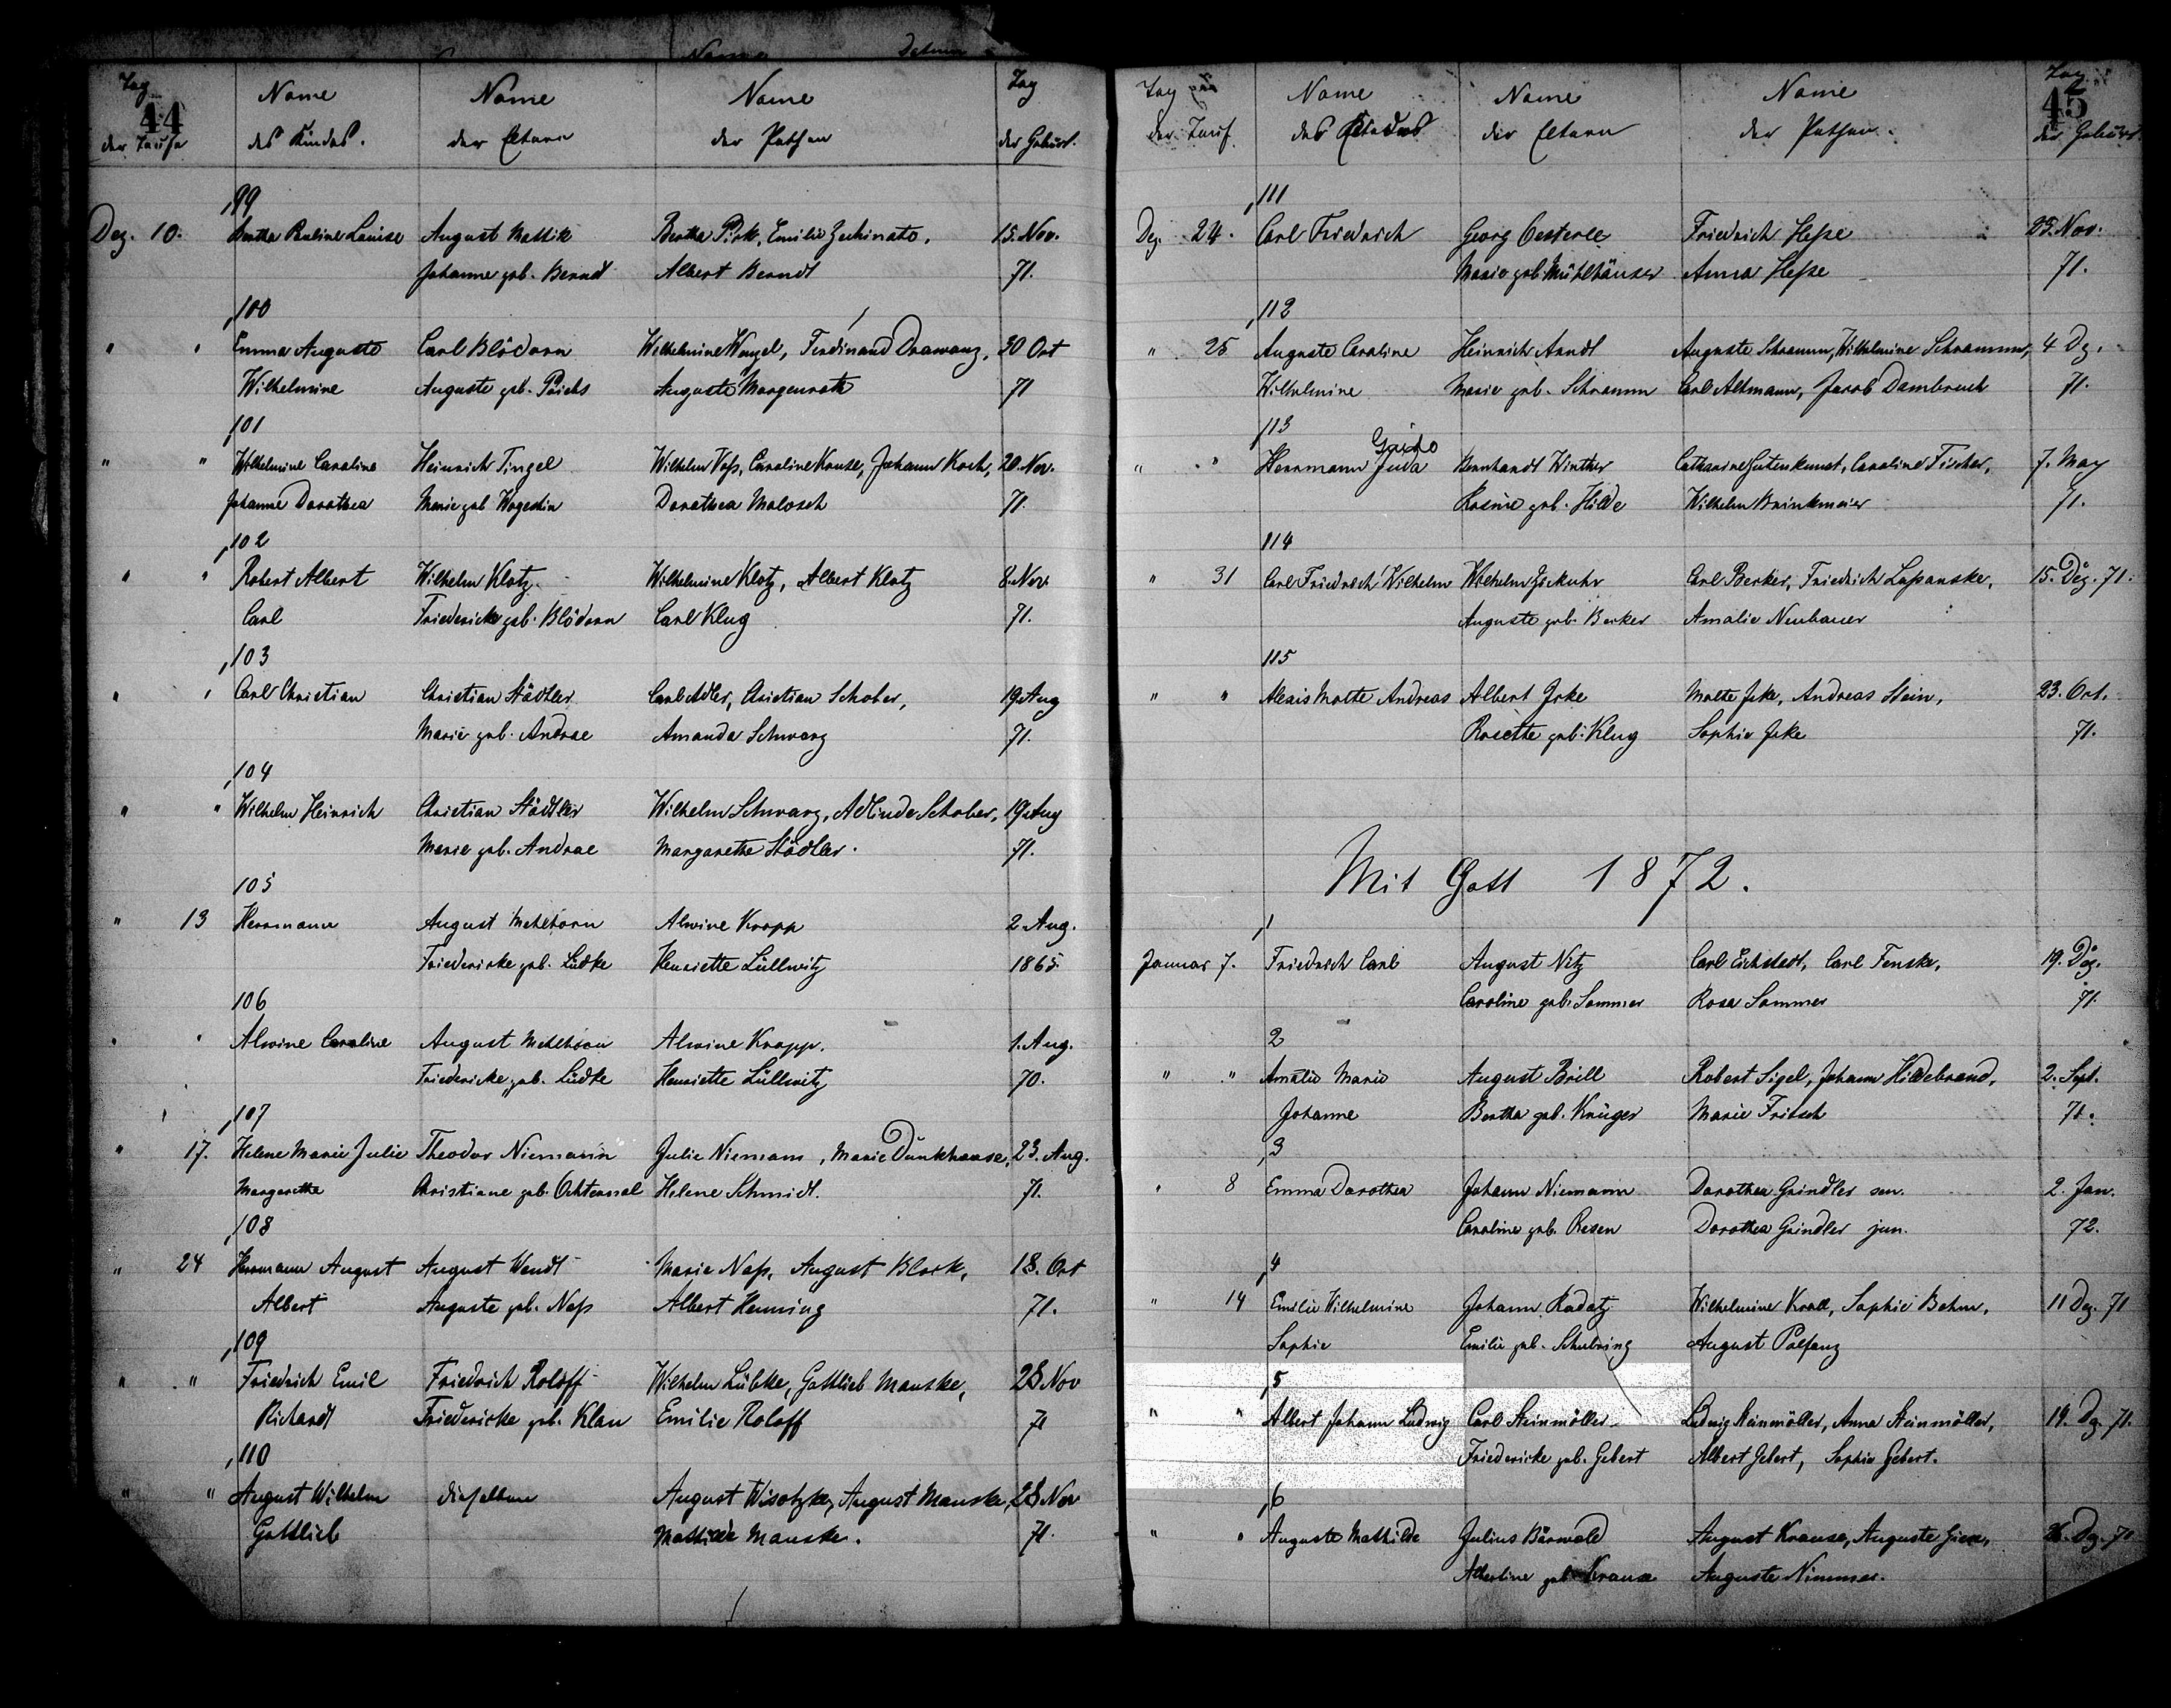 Tag
44
der Taufe
Name
des Kindes.
Name
der Eltern
Name
der Pathen
Tag
der Geburt.
99
Dez. 10. Bertha Pauline Louise August Mattik Bertha Pirk, Emilie 15. Nov.
Johanne geb. Berndt Albert Berndt 71.
100
" " Emma Auguste Carl Blödorn Wilhelmine Wenzel, Ferdinand Drawanz, 30 Oct
Wilhelmine Auguste geb. Auguste Morgenroth 71
101
" " Wilhelmine Caroline Heinrich Tingel Wilhelm Voß, Caroline Krause, Johann Koch, 20. Nov.
Johanne Dorothea Marie geb Dorothea Molosch 71.
102
" " Robert Albert Wilhelm Klotz Wilhelmine Klotz, Albert Klotz 8. Nov.
Carl Friedericke geb. Blödorn Carl Klug 71.
103
" " Carl Christian Christian Städtler Carl Adler, Christian Schober, 19 Aug
Marie geb. Andrae Amanda Schwarz 71.
104
" " Wilhelm Heinrich Christian Städtler Wilhelm Schwarz, Adlinde Schober, 19 Aug
Marie geb. Andrae Margarethe Städler. 71.
105
" 13 Herrmann August Mehlhorn Alwine Kropp 2. Aug.
Friedericke geb. Lüdke Henriette Lüllwitz 1865.
106
" " Alwine Caroline August Mehlhorn Alwine Kropp. 1. Aug.
Friedericke geb. Lüdke Henriette Lüllwitz 70.
107
" 17. Helene Marie Julie Theodor Niemann Julie Niemann, Marie Dünkhaase, 23. Aug.
Margarethe Christiane geb. Helene Schmidt. 71.
108
" 24 Herrmann August August Wendt Marie Naß, August Block, 18. Oct
Albert Auguste geb. Naß Albert Henning 71.
109
" " Friedrich Emil Friedrich Roloff Wilhelm Lübke, Gottlieb Manske, 28 Nov
Richard Friedericke geb. Klan Emilie Roloff 71
110
" " August Wilhelm dieselben August Wisotzke, August Manske, 28 Nov
Gottlieb Mathilde Manske. 71.
Tag
der Tauf.
Name
des Kindes
Name
der Eltern
Name
der Pathen.
Tag
45
der Geburt
111
Dez. 24. Carl Friedrich Georg Oesterle Friedrich Heße 25. Nov.
Marie geb. Mühlhäuser Anna Heße 71.
112
" 25 Auguste Caroline Heinrich Arndt Auguste Schramm, Wilhelmine Schramm, 4 Dz.
Wilhelmine Marie geb. Schramm Carl Altmann, Jacob Dambruch 71.
113
Guido
" " Herrmann Juda Bernhardt Winther Catharine Gutenkunst, Caroline Fischer, 7. May
Rosine geb. Hilde Wilhelm Brinkmeier 71.
114
" 31 Carl Friedrich Wilhelm Wilhelm Carl Becker, Friedrich 15. Dez. 71.
Auguste geb. Becker Amalie Neubauer
115
" " Alexis Malte Andreas Albert Jeke Malte Jeke, Andreas Stein, 23. Oct.
Rosette geb. Klug Sophie Jeke 71.
Mit Gott 1872.
1
Januar 7. Friedrich Carl August Nitz Carl Eichstedt, Carl Fenske, 19. Dez.
Caroline geb. Sommer Rosa Sommer 71.
2
" " Amalie Marie August Brill Robert Sigel, Johann Hildebrand, 2. Sept.
Johanne Bertha geb. Krüger Marie Fritsch 71.
3
" 8 Emma Dorothea Johann Niemann Dorothea Grindler sen. 2. Jan.
Caroline geb. Resen Dorothea Grindler jun. 72.
4
" 14 Emilie Wilhelmine Johann Radatz Wilhelmine Krall, Sophie Behm, 11 Dez. 71
Sophie Emilie geb. Schubring August Polfanz
5
" " Albert Johann Ludwig Carl Steinmöller Ludwig Steinmöller, Anna Steinmöller, 19. Dz. 71.
Friedericke geb. Gebert Albert Gebert, Sophie Gebert.
6
" " Auguste Mathilde Julius Bärwald August Krause, Auguste 26. Dz. 71
Albertine geb. Krause Auguste Nimmer.